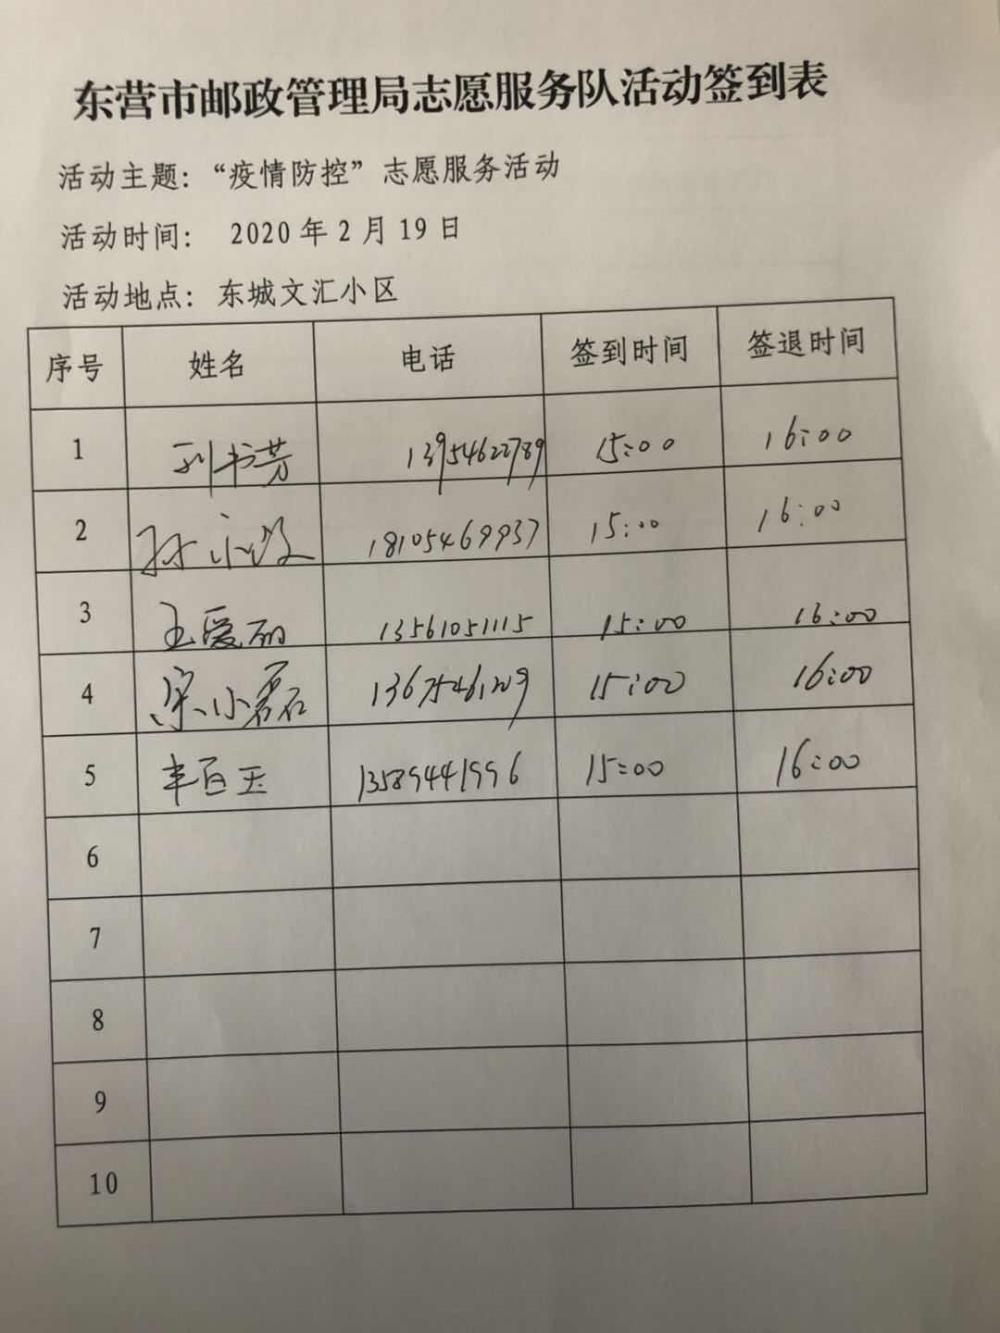 东营市邮政管理局志愿服务队活动签到表
活动主题：“疫情防控”志愿服务活动
活动时间： 2020年2月19日
活动地点：东城文汇小区
序号 姓名 电话 签到时间 签退时间
1 刘书芳 13954622789 15:00 16:00
2 孙 18105469937 15:00 16:00
3 王爱丽 13561051115 15:00 16:00
4 宋小磊 15:00 16:00
5 丰百玉 13589441996 15:00 16:00
6
7
8
9
10